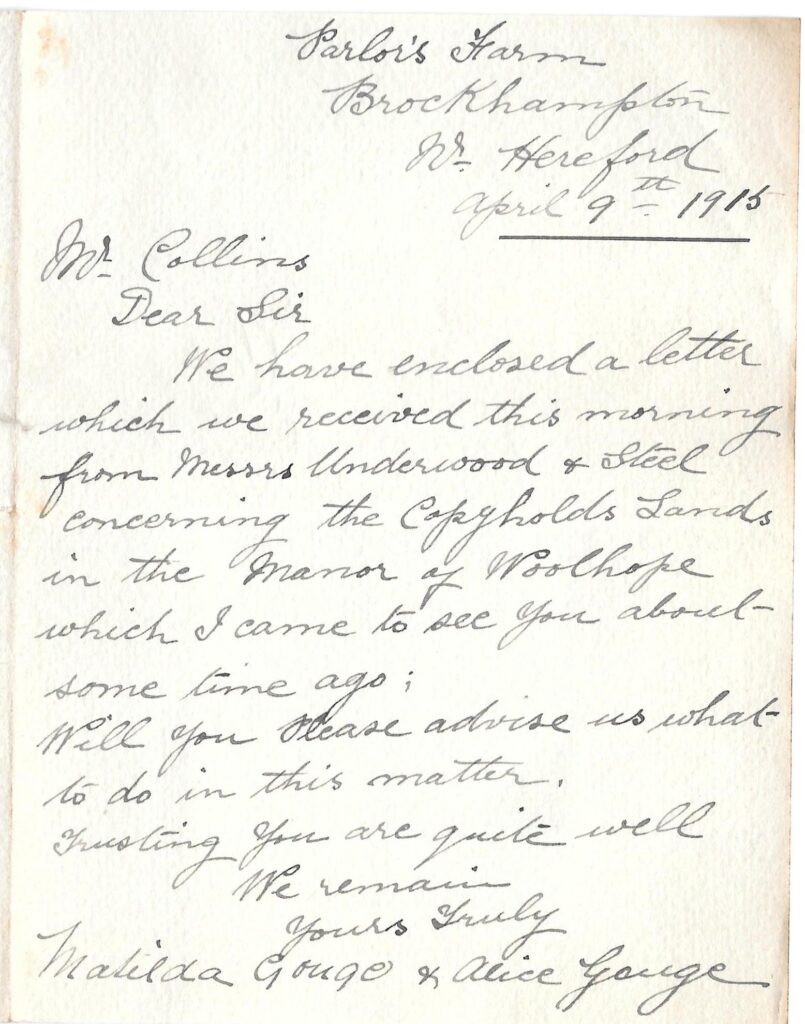 Parlor's Farm
Brockhampton
Nr Hereford
April 9th 1915
Mr Collins
Dear Sir
We have enclosed a letter
which we received this morning
from Messrs Underwood & Steel
concerning the Copyholds Lands
in the Manor of Woolhope
which I came to see You about
some time ago;
Will You Please advise us what
to do in this matter.
Trusting You are quite well
We remain
Yours Truly
Matilda Gouge & Alice Gouge